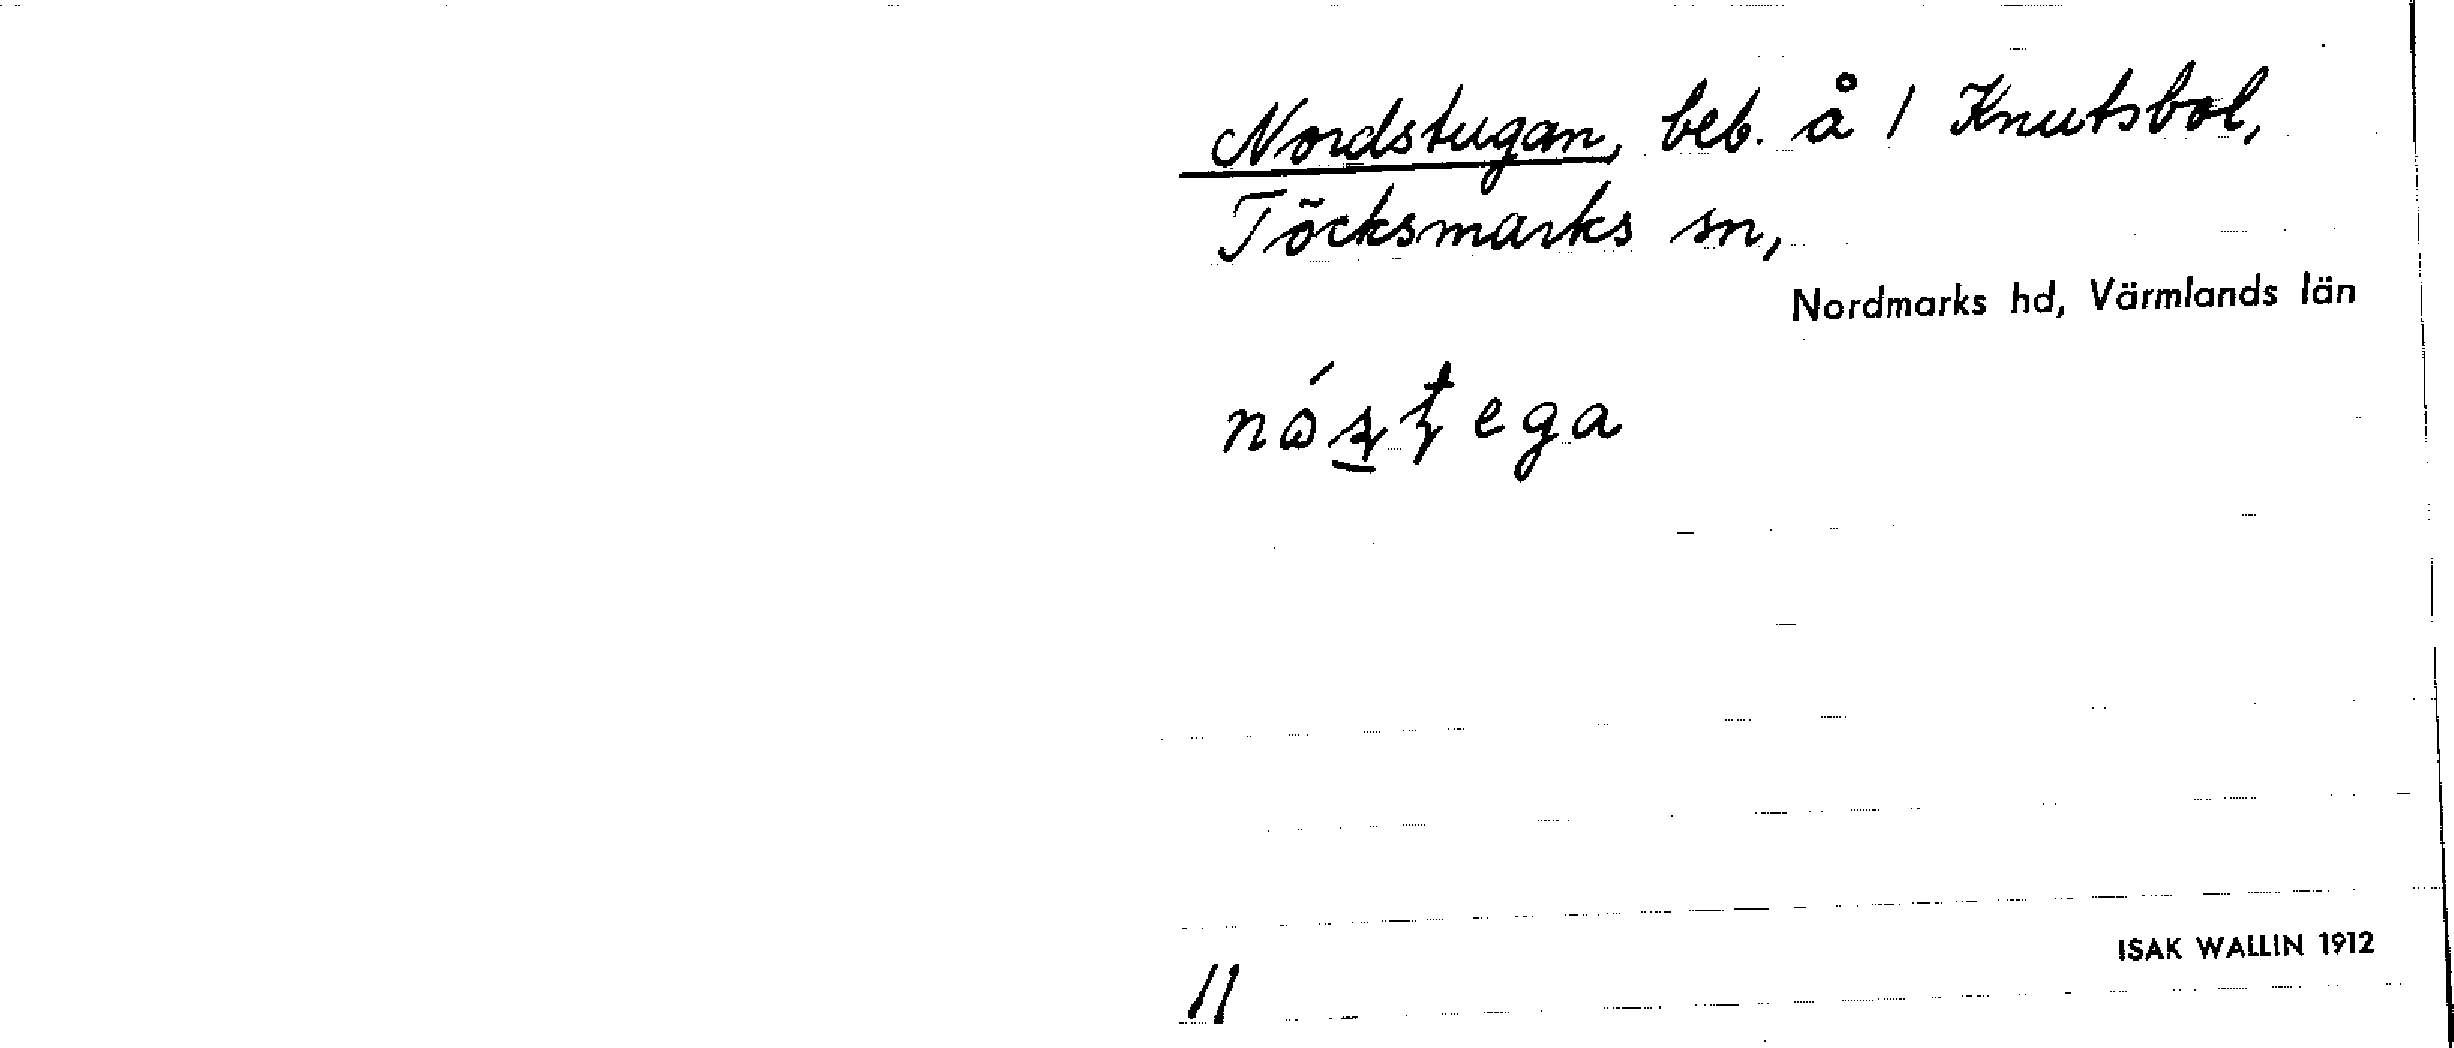 Nordstugan, beb. å 1 Knutsbol,
Töcksmarks sn,
Nordmarks hd, Värmlands län
ISAK WALLIN 1912
11